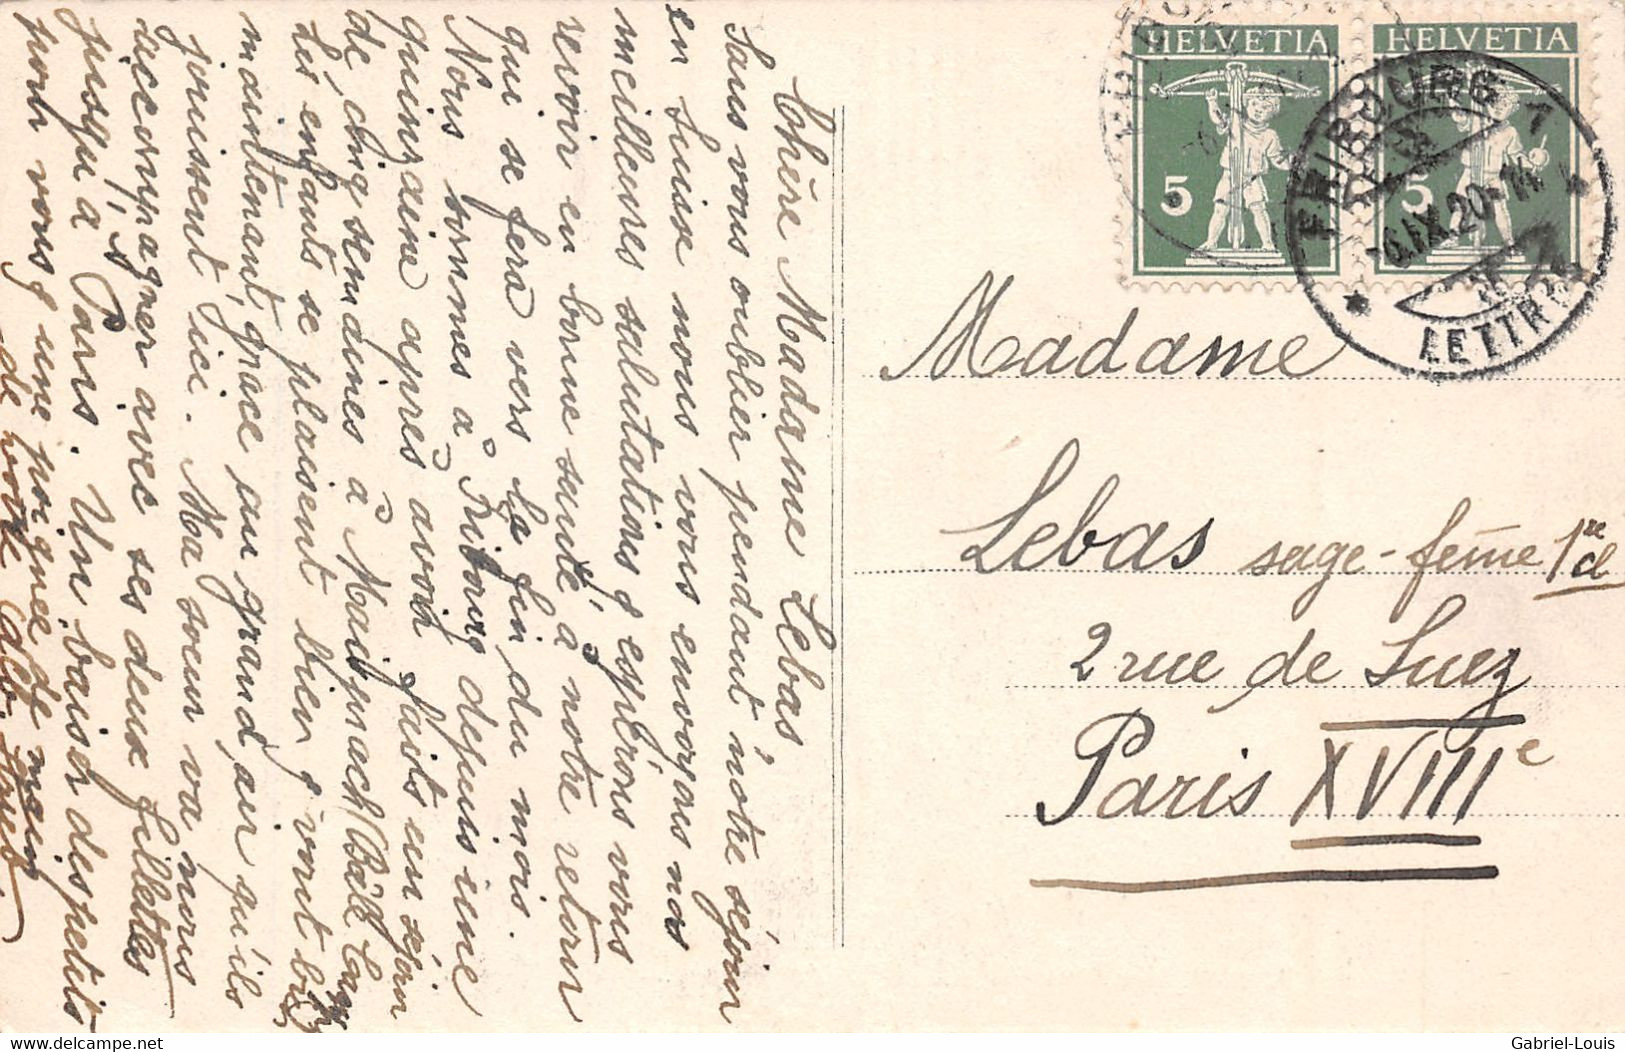 Chère Madame Lebas
Sans vous oublier pendant notre séjour
en Suisse nous vous envoyons nos
meilleures salutations q espérons vous
revoir en bonne santé à notre retour
qui se fera vers la fin du mois.
Nous sommes à Fribourg depuis une
quinzaine après avoir faits un séjour
de cinq semaines à Maisprach (Bâle Camp
Les enfants se plaisent bien q vont bien
maintenant, grâce au grand air qu'ils
jouissent ici. Ma soeur va nous
accompagner avec ses deux fillettes
jusqu'à Paris. Un baiser des petits
pour vous q une poignée de main
de votre
HELVETIA
5
HELVETIA
5
FRIBOURG 1
-6.IX.20-14
LETTR
Madame
Lebas sage-feme 1re cl
2 rue de Suez
Paris XVIIIe
delcampe.net
Gabriel-Louis